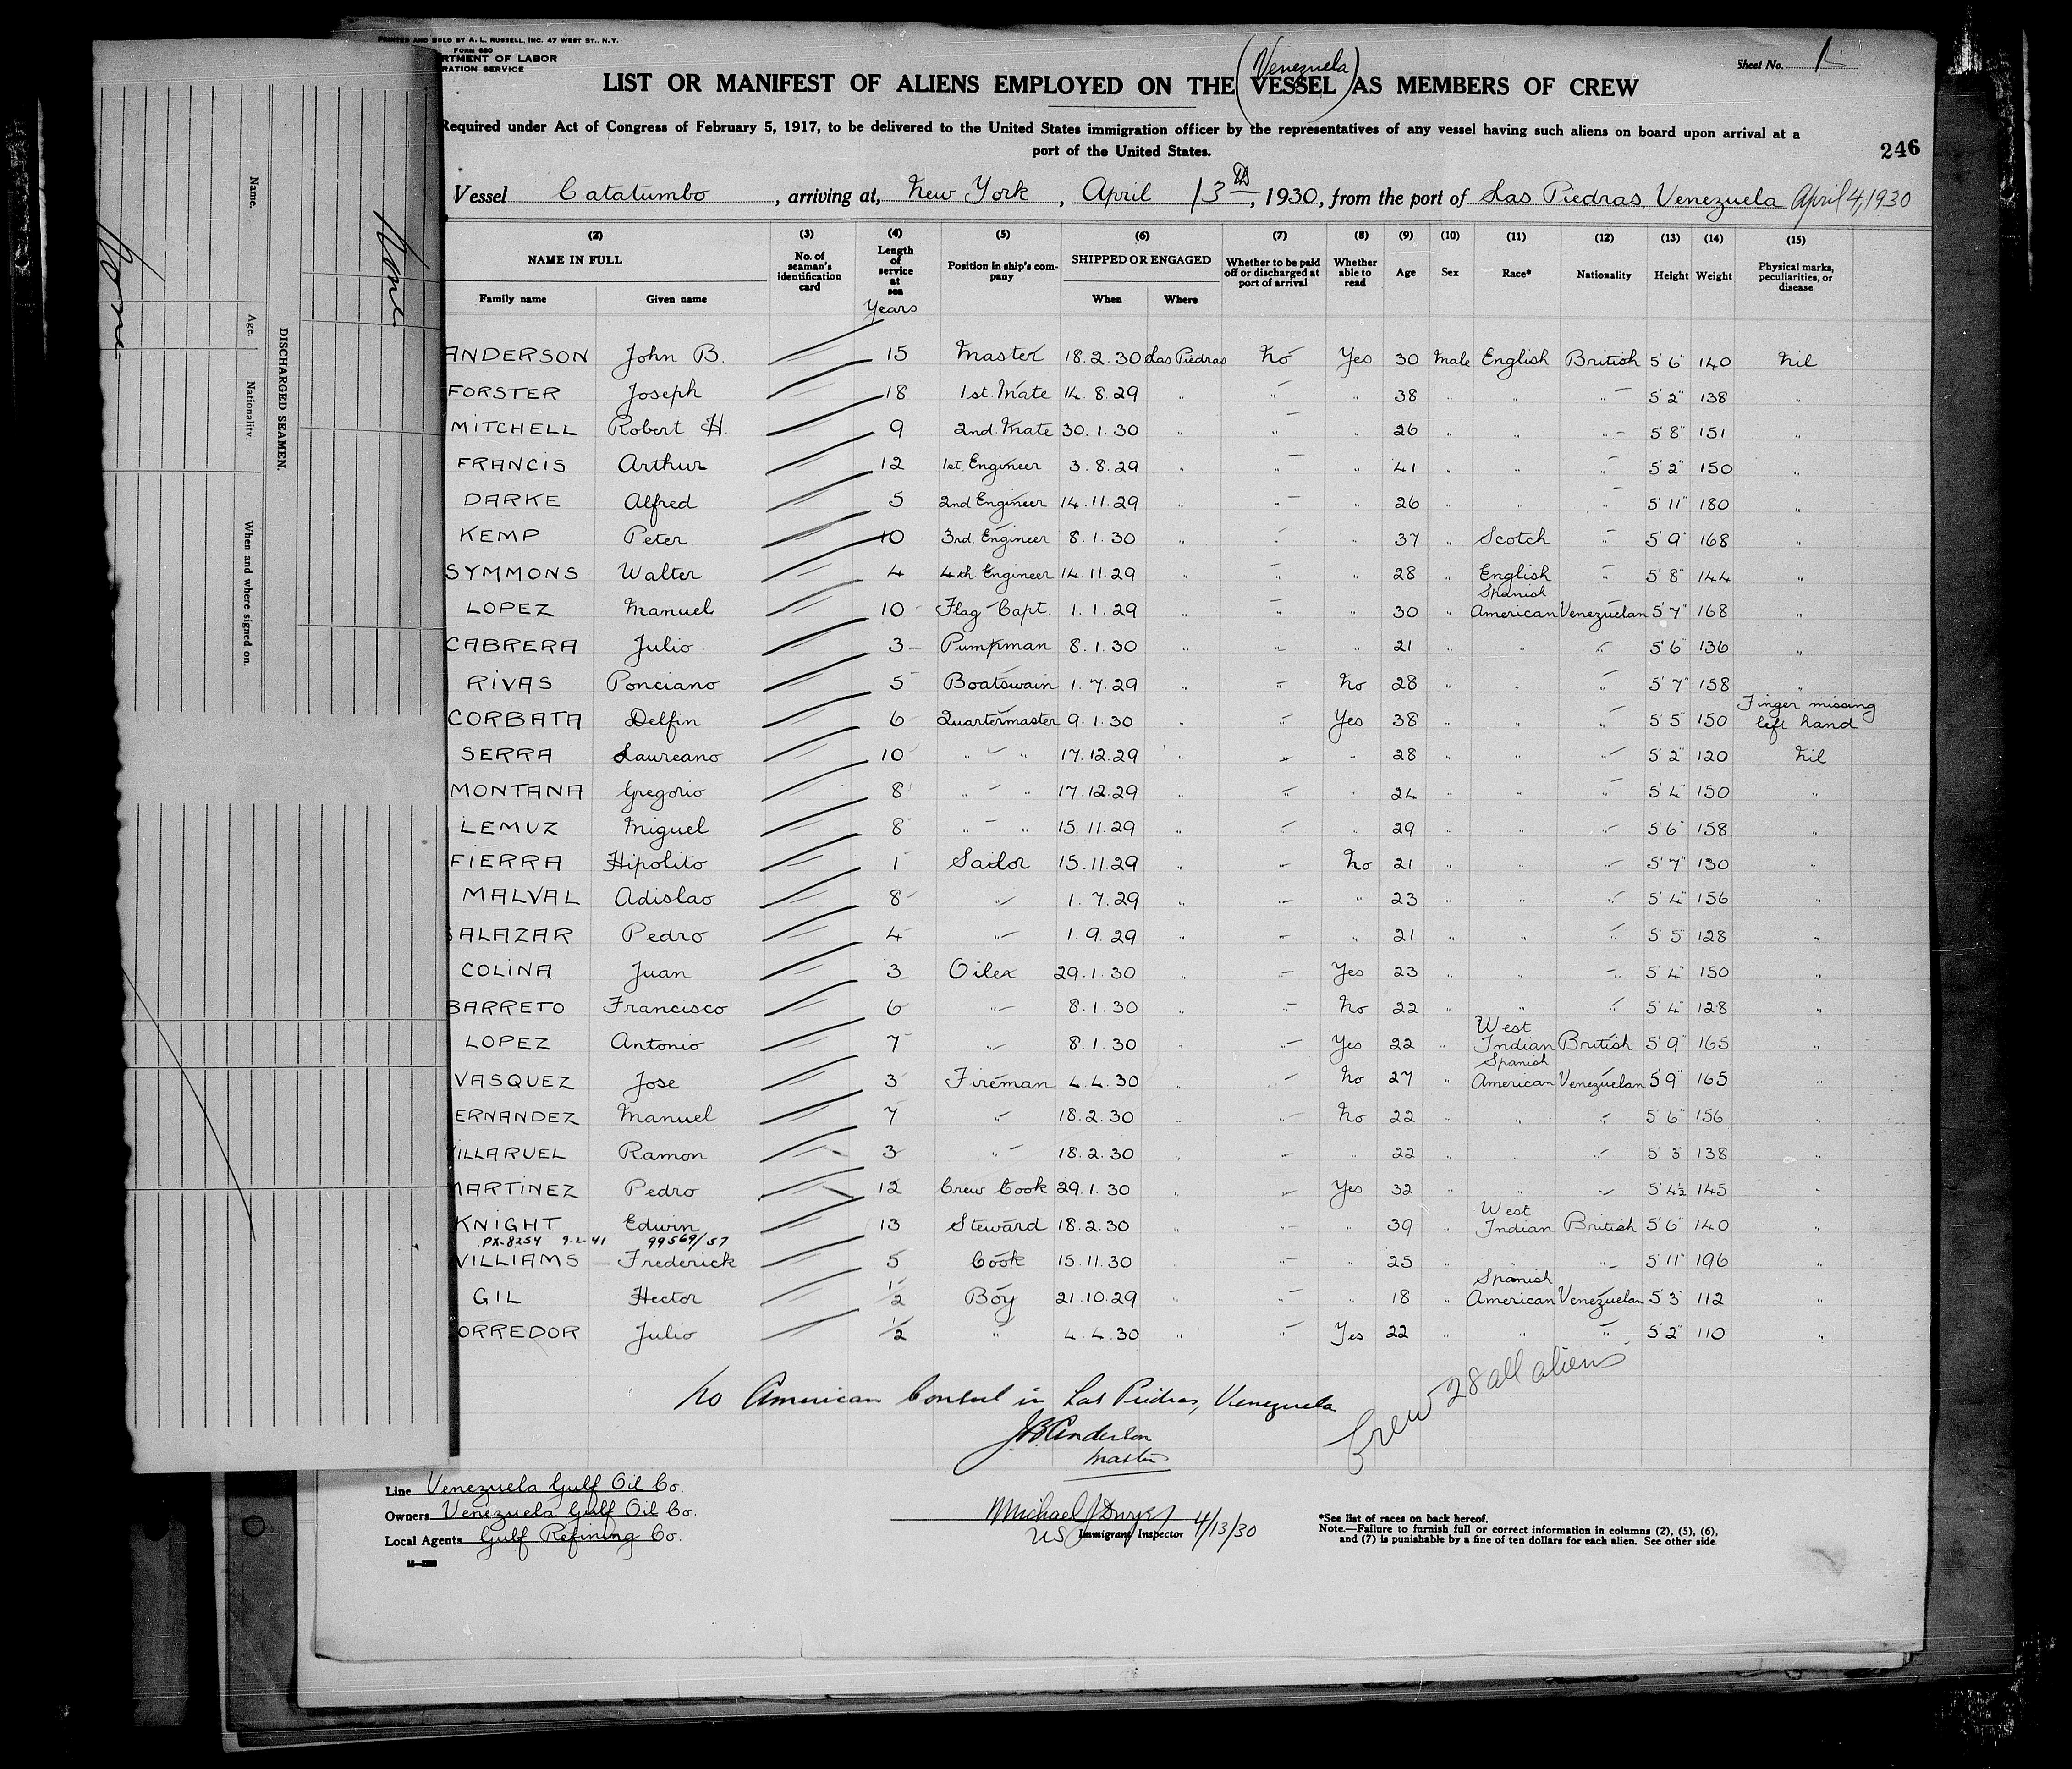 PRINTED AND SOLD BY A. L. RUSSELL, INC. 47 WEST ST., N.Y.
FORM 680
RTMENT OF LABOR
RATION SERVICE
Sheet No. 1
(Venezuela)
LIST OR MANIFEST OF ALIENS EMPLOYED ON THE VESSEL AS MEMBERS OF CREW
Required under Act of Congress of February 5, 1917, to be delivered to the United States immigration officer by the representatives of any vessel having such aliens on board upon arrival at a
port of the United States.
246
Vessel Catatumbo, arriving at, New York, April 13th, 1930, from the port of Las Piedras, Venezuela April 4, 1930
(2) (3) (4) (5) (6) (7) (8) (9) (10) (11) (12) (13) (14) (15)
NAME IN FULL No. of seaman's identification card Length of service at sea Position in ship's company SHIPPED OR ENGAGED Whether to be paid off or discharged at port of arrival Whether able to read Age Sex Race* Nationality Height Weight Physical marks, peculiarities, or disease
Family name Given name Years When Where
ANDERSON John B. 15 Master 18.2.30 Las Piedras No Yes 30 Male English British 5'6" 140 Nil
FORSTER Joseph 18 1st. Mate 14.8.29 " " " 38 " " " 5'2" 138 "
MITCHELL Robert H. 9 2nd. Mate 30.1.30 " " " 26 " " " 5'8" 151 "
FRANCIS Arthur 12 1st. Engineer 3.8.29 " " " 41 " " " 5'2" 150 "
DARKE Alfred 5 2nd Engineer 14.11.29 " " " 26 " " " 5'11" 180 "
KEMP Peter 10 3rd. Engineer 8.1.30 " " " 37 " Scotch " 5'9" 168 "
SYMMONS Walter 4 4th Engineer 14.11.29 " " " 28 " English " 5'8" 144 "
LOPEZ Manuel 10 Flag Capt. 1.1.29 " " " 30 " Spanish American Venezuelan 5'7" 168 "
CABRERA Julio 3 Pumpman 8.1.30 " " " 21 " " " 5'6" 136 "
RIVAS Ponciano 5 Boatswain 1.7.29 " " No 28 " " " 5'7" 158 "
CORBATA Delfin 6 Quartermaster 9.1.30 " " Yes 38 " " " 5'5" 150 Finger missing left hand
SERRA Laureano 10 " " 17.12.29 " " " 28 " " " 5'2" 120 Nil
MONTANA Gregorio 8 " " 17.12.29 " " " 24 " " " 5'4" 150 "
LEMUZ Miguel 8 " " 15.11.29 " " " 29 " " " 5'6" 158 "
FIERRA Hipolito 1 Sailor 15.11.29 " " No 21 " " " 5'7" 130 "
MALVAL Adislao 8 " 1.7.29 " " " 23 " " " 5'4" 156 "
SALAZAR Pedro 4 " 1.9.29 " " " 21 " " " 5'5" 128 "
COLINA Juan 3 Oiler 29.1.30 " " Yes 23 " " " 5'4" 150 "
BARRETO Francisco 6 " 8.1.30 " " No 22 " " " 5'4" 128 "
LOPEZ Antonio 7 " 8.1.30 " " Yes 22 " West Indian British 5'9" 165 "
VASQUEZ Jose 3 Fireman 4.4.30 " " No 27 " Spanish American Venezuelan 5'9" 165 "
ERNANDEZ Manuel 7 " 18.2.30 " " No 22 " " " 5'6" 156 "
ILLARUEL Ramon 3 " 18.2.30 " " " 22 " " " 5'3" 138 "
MARTINEZ Pedro 12 Crew Cook 29.1.30 " " Yes 32 " " " 5'4½ 145 "
KNIGHT Edwin 13 Steward 18.2.30 " " " 39 " West Indian British 5'6" 140 "
PX-8254 9-2-41 99569/57
WILLIAMS Frederick 5 Cook 15.11.30 " " " 25 " " " 5'11" 196 "
GIL Hector ½ Boy 21.10.29 " " " 18 " Spanish American Venezuelan 5'3" 112 "
ORREDOR Julio ½ " 4.4.30 " " Yes 22 " " " 5'2" 110 "
No American Consul in Las Piedras, Venezuela
J.B. Anderson
Master
Crew 28 all aliens
Line Venezuela Gulf Oil Co.
Owners Venezuela Gulf Oil Co.
Local Agents Gulf Refining Co.
Michael J Dwyer 4/13/30
US Immigrant Inspector
*See list of races on back hereof.
Note.—Failure to furnish full or correct information in columns (2), (5), (6),
and (7) is punishable by a fine of ten dollars for each alien. See other side.
DISCHARGED SEAMEN.
Name. Age. Nationality When and where signed on.
None
None